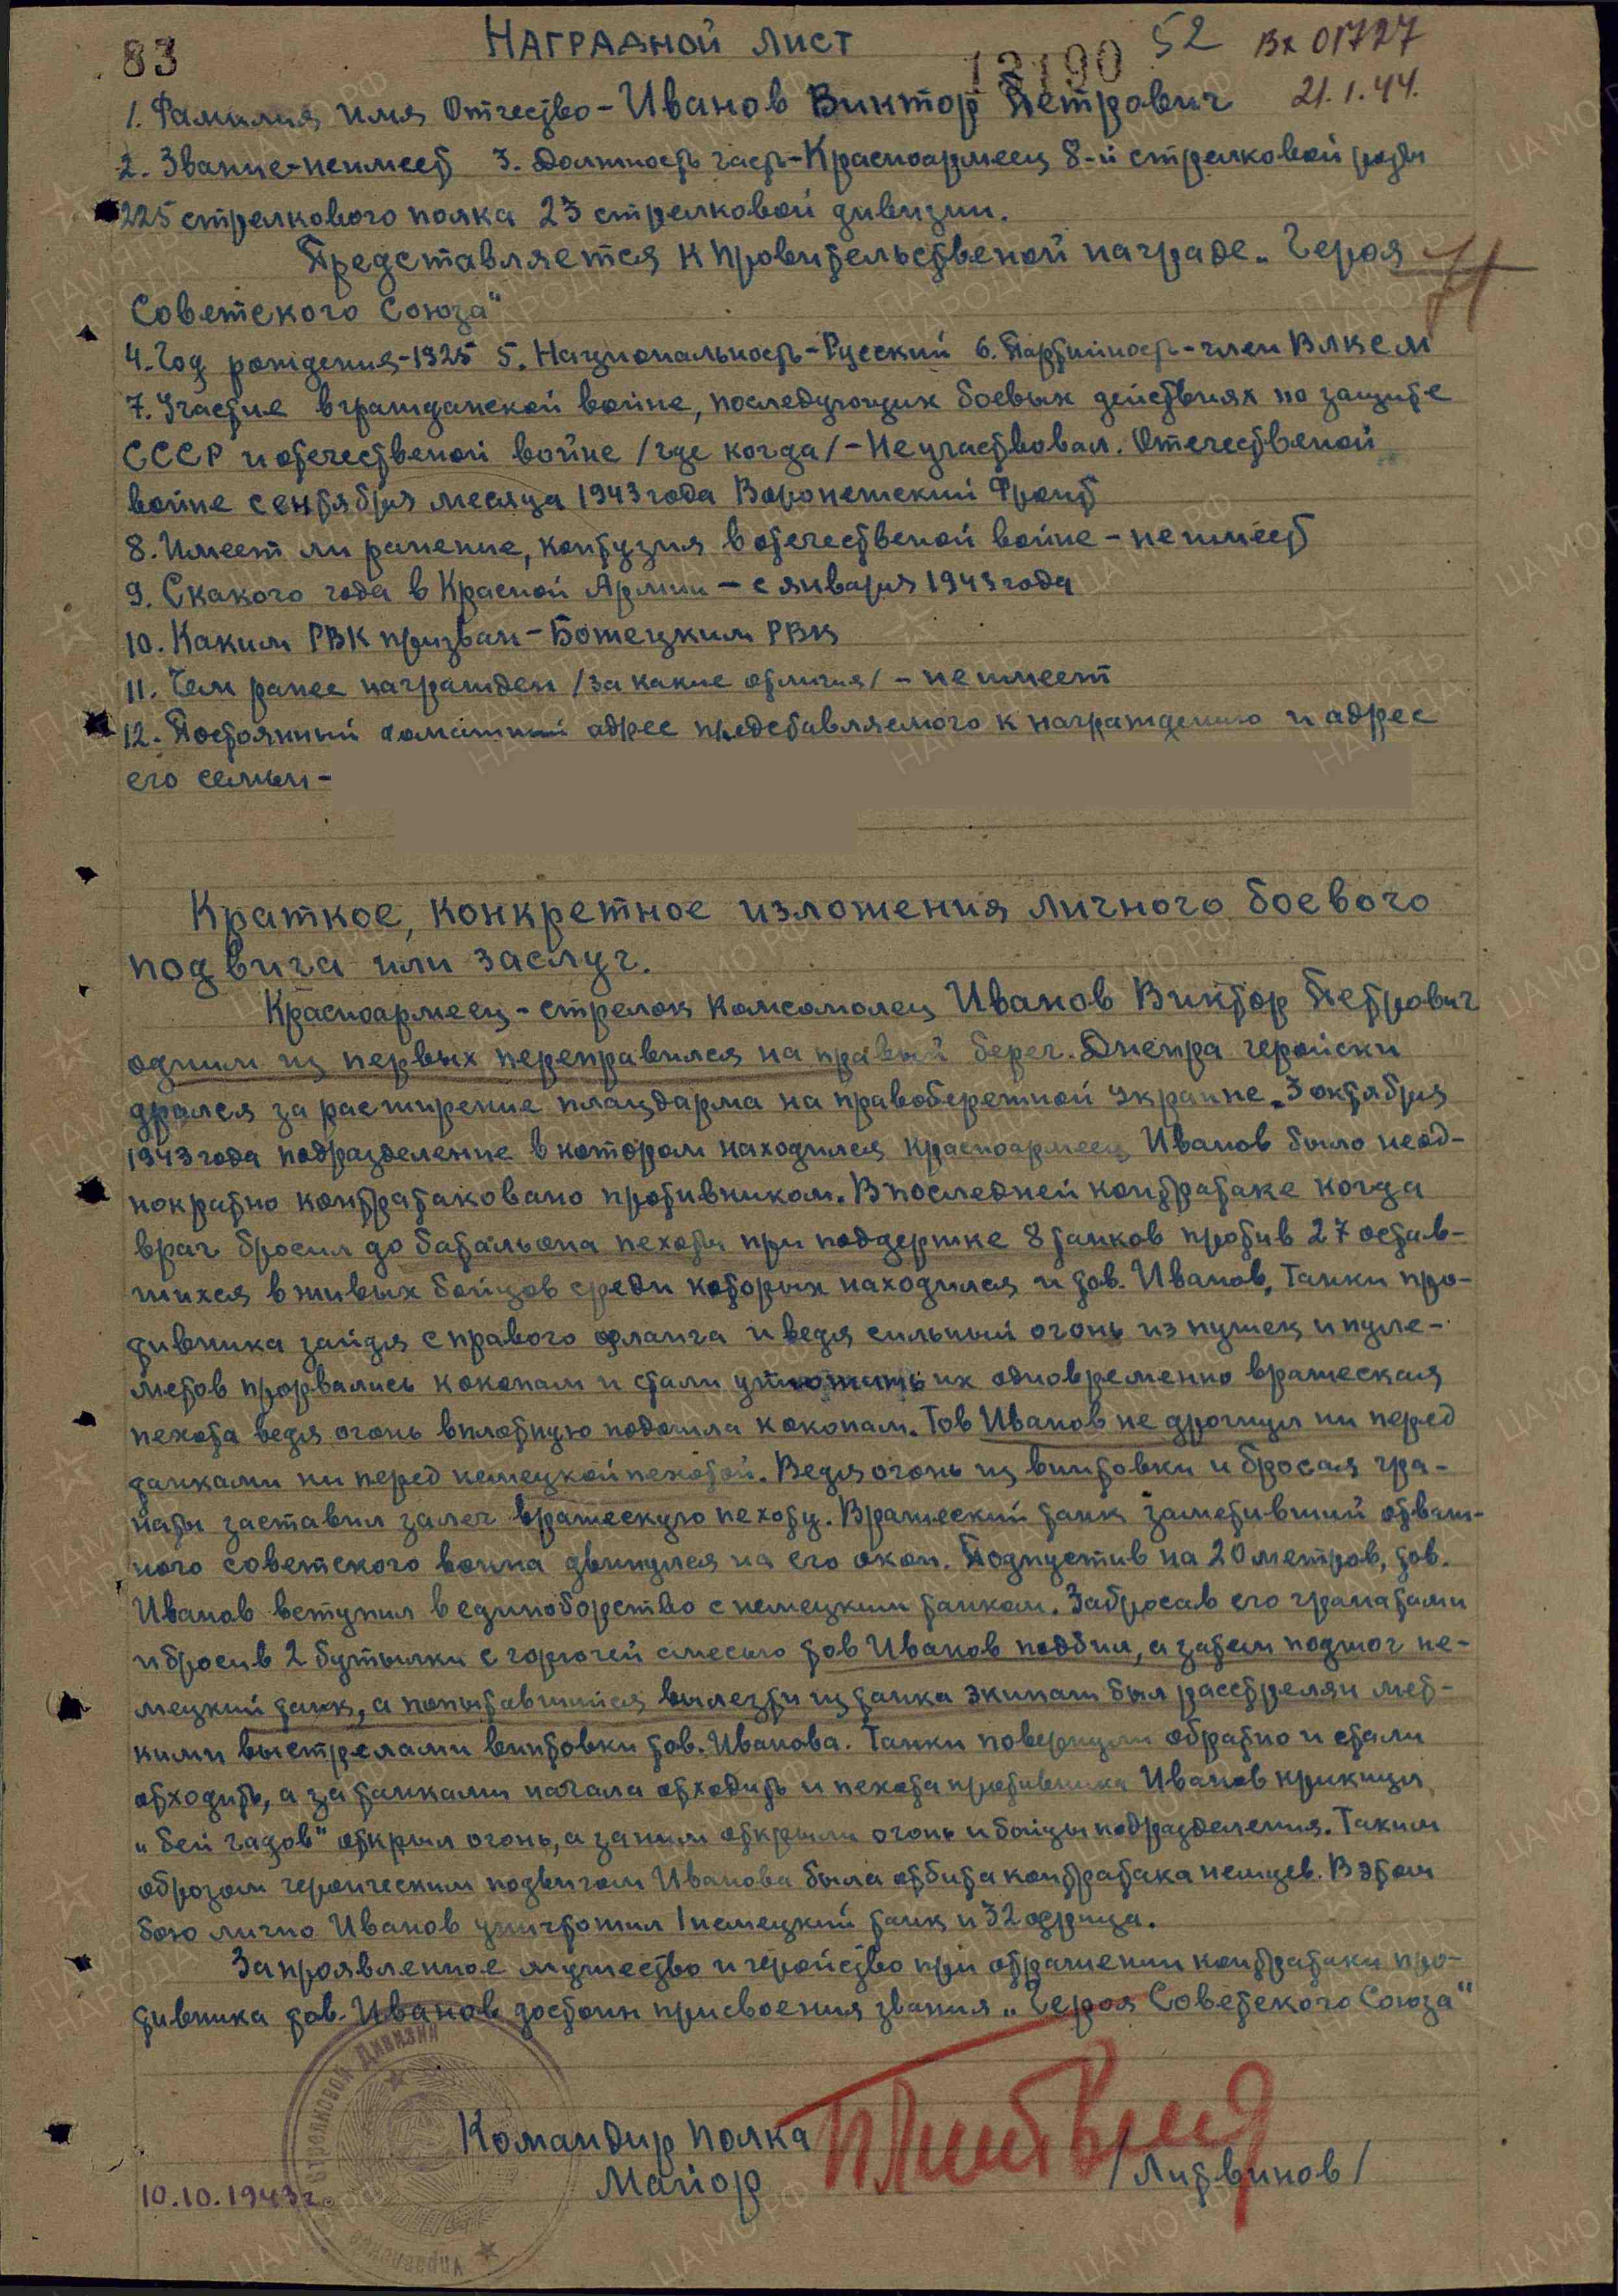 83
Наградной лист
13190
52 Вх 01727
21.1.44.
1. Фамилия имя Отчество - Иванов Виктор Петрович
2. Звание - неимеет 3. Должность часть - Красноармеец 8-й стрелковой роты
225 стрелкового полка 23 стрелковой дивизии.
Представляется к провительственой награде „Героя
Советского Союза"
4. Год рождения - 1925 5. Национальность - Русский 6. Партийность - член ВЛКСМ
7. Участие в гражданской войне, последующих боевых действиях по защите
СССР и отечественой войне /где когда/ - Не участвовал. Отечественой
войне сентября месяца 1943 года Воронежский Фронт
8. Имеет ли ранение, контузия в отечественой войне - не имеет
9. С какого года в Красной Армии - с января 1943 года
10. Каким РВК призван - Божецким РВК
11. Чем ранее награжден /за какие отличия/ - не имеет
12. Постоянный домашний адрес представляемого к награждению и адрес
его семьи -
Краткое, конкретное изложения личного боевого
подвига или заслуг.
Красноармеец - стрелок комсомолец Иванов Виктор Петрович
одним из первых переправился на правый берег. Днепра геройски
дрался за расширение плацдарма на правобережной украине. 3 октября
1943 года подразделение в котором находился красноармеец Иванов было неод-
нократно контратаковано противником. В последней контратаке когда
враг бросил до батальона пехоты при поддержке 8 танков против 27 остав-
шихся в живых бойцов среди которых находился и тов. Иванов, Танки про-
тивника зайдя с правого фланга и ведя сильный огонь из пушек и пуле-
метов прорвались к окопам и стали утюжить их одновременно вражеская
пехота ведя огонь вплотную подошла к окопам. Тов Иванов не дрогнул ни перед
танками ни перед немецкой пехотой. Ведя огонь из винтовки и бросая гра-
наты заставил залеч вражескую пехоту. Вражеский танк заметивший отваж-
ного советского воина двинулся на его окоп. Подпустив на 20 метров, тов.
Иванов вступил в единоборство с немецким танком. Забросав его гранатами
и бросив 2 бутылки с горючей смесью тов Иванов подбил, а затем поджог не-
мецкий танк, а попытавшийся вылезти из танка экипаж был расстрелян мет-
кими выстрелами винтовки тов. Иванова. Танки повернули обратно и стали
отходить, а за танками начала отходить и пехота противника Иванов крикнул
„бей гадов" открыл огонь, а за ним открыли огонь и бойцы подразделения. Таким
образом героическим подвигом Иванова была отбита контратака немцев. В этом
бою лично Иванов уничтожил 1 немецкий танк и 32 фрица.
За проявленное мужество и геройство при отражении контратаки про-
тивника тов. Иванов достоин присвоения звания „Героя Советского Союза"
Командир полка
Майор /Литвинов/
10.10.1943 г.
Стрелковой Дивизии
Управление
ПАМЯТЬ НАРОДА
ЦА МО РФ